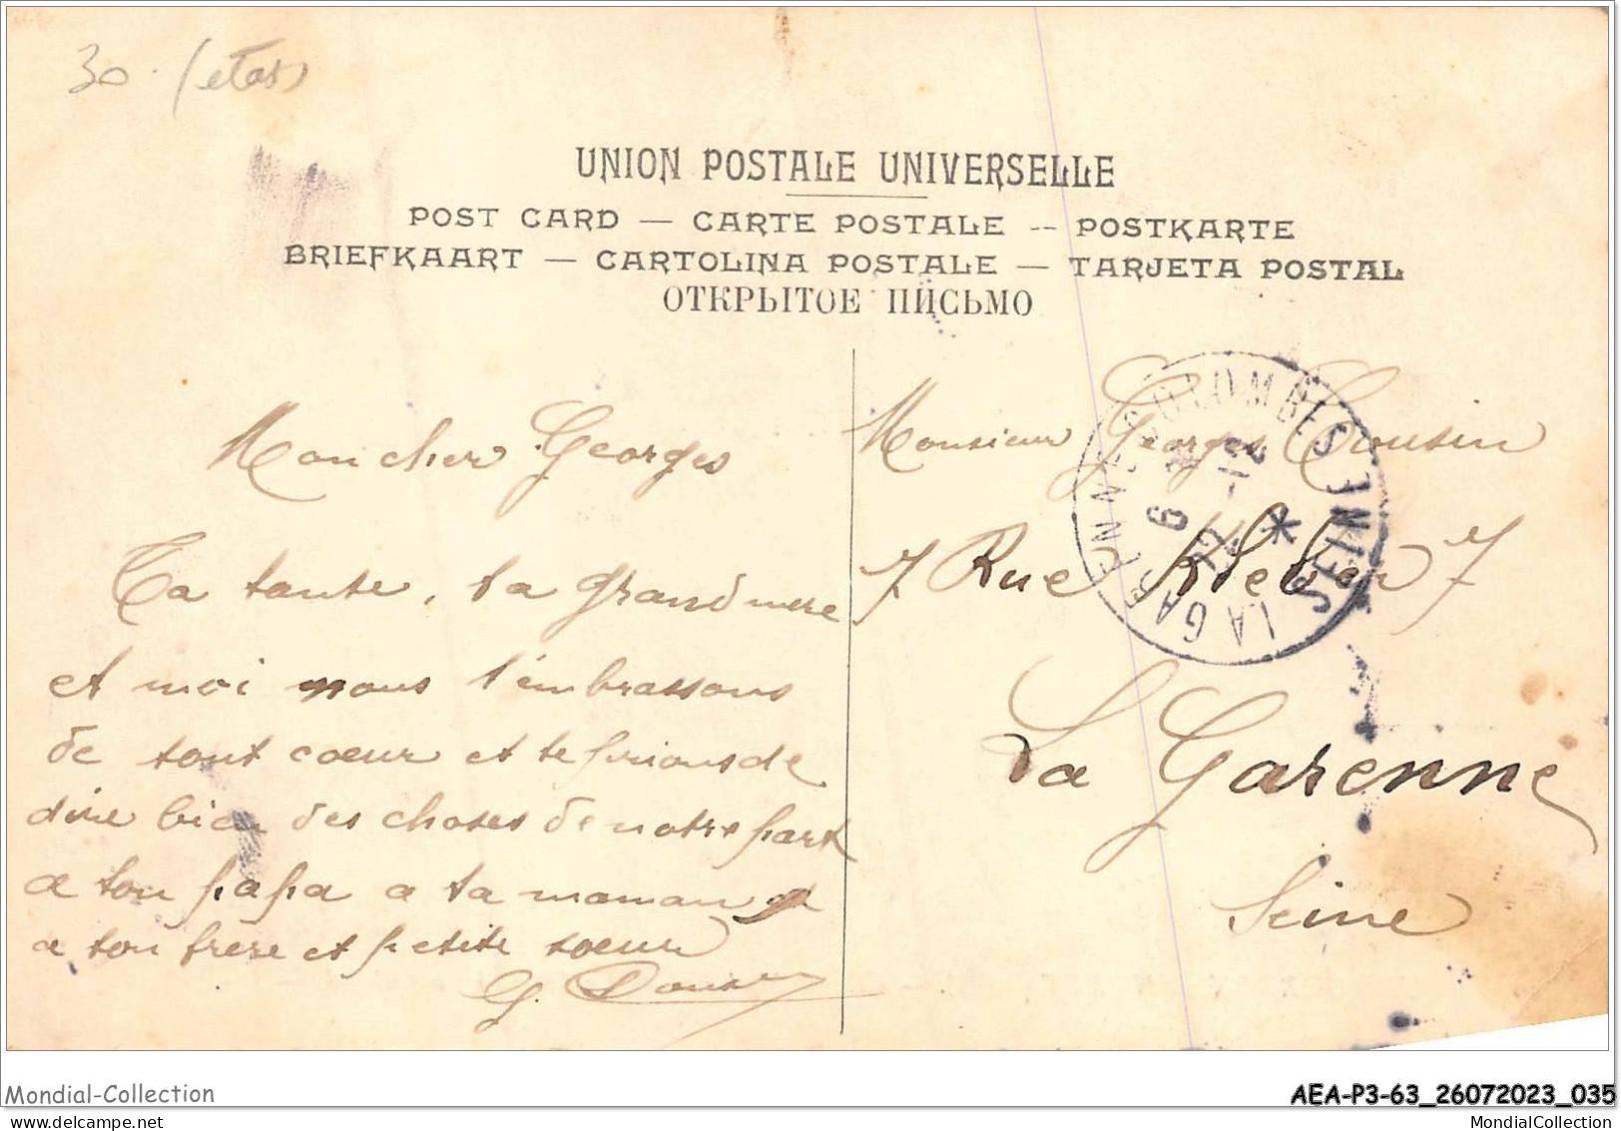 30. (etat)
UNION POSTALE UNIVERSELLE
POST CARD — CARTE POSTALE -- POSTKARTE
BRIEFKAART — CARTOLINA POSTALE — TARJETA POSTAL
ОТКРЫТОЕ ПИСЬМО
Mon cher Georges
Ta tante, ta grand mere
et moi nous t'embrassons
de tout coeur et te prions de
dire bien des choses de notre part
a ton papa a ta maman
a ton frere et petite soeur
G.
Monsieur Georges Cousin
7 Rue Kleber 7
La Garenne
Seine
LA GARENNE-COLOMBES
SEINE
22 -12
Mondial-Collection
AEA-P3-63_26072023_035
MondialCollection
MondialCollection